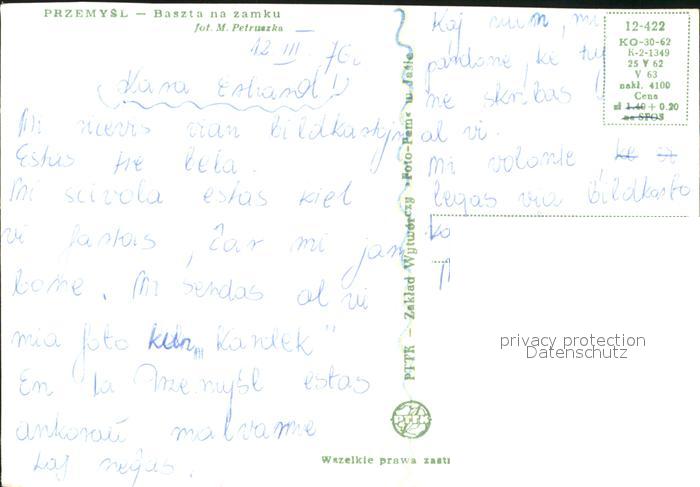 PRZEMYŚL — Baszta na zamku
fot. M. Petruszka
12 III. 76
Kara
Mi ricevis vian bildkarton
Estas tre bela.
Mi scivola estas kiel
vi fartas, Ĉar mi jam
bone. Mi sendas al vi
mia foto kun „Kardek"
En la Przemyśl estas
ankoraŭ malvarme
kaj neĝas.
PTTK — Zakład Wytwórczy »Foto-Pam« w Jaśle
PTTK
Kaj mi
pardone, ke
ne skribas
al vi.
Mi volonte ke
legas vian bildkarto
12-422
KO-30-62
K-2-1349
25 V 62
V 63
nakł. 4100
Cena
zł 1.40 + 0.20
na SFOS
privacy protection
Datenschutz
Wszelkie prawa zast